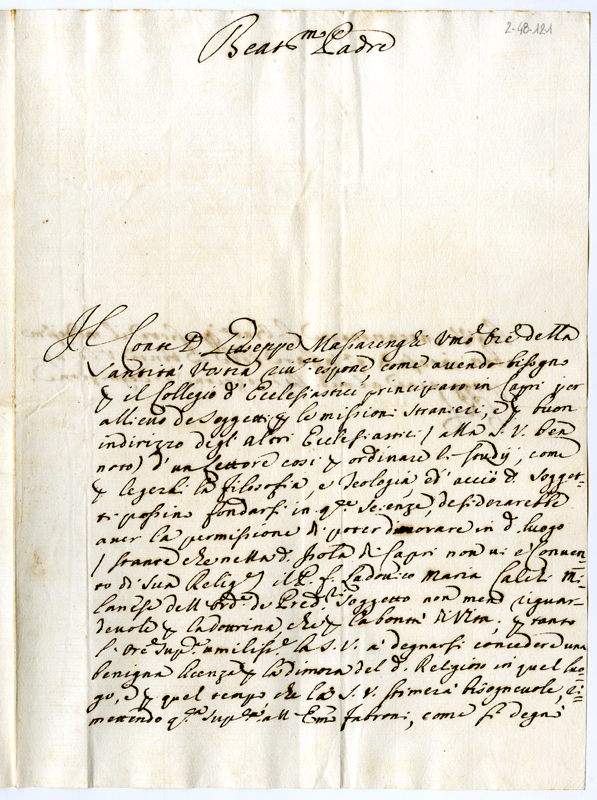 2-48-121
Beat.mo Padre
Il Conte D. Giuseppe Massarenghi Umo. Ore. della
Santità Vostra riu.te espone, come avendo bisogno
il Collegio d'Ecclesiastici principiato in Capri per
allievo de Soggetti p le missioni Straniere, e p buon
indirizzo degl'altri Ecclesiastici (alla S. V. ben
noto) d'un Lettore così p ordinare li studij, come
p legerli la filosofia, e Teologia, ed acciò d. Sogget-
ti possino fondarsi in q.te Scienze, desiderarebbe
aver la permissione di poter dimorare in d. luogo
(stante che nella d. Isola di Capri non vi è Conven-
to di sua Relig.e) il P. f. Ludovico Maria Mi-
lanese dell'Ord.e de Pred.ri Soggetto non meno riguar-
devole p la dottrina, che p la bontà di Vita; p tanto
l'Ore. sup.ca umiliss.e la S. V. a degnarsi concedere una
benigna licenza p la dimora del d. Religioso in quel luo-
go, e p quel tempo che la S. V. stimerà bisognevole, ri-
mettendo q.ta sup.ca all'Emo Fabroni, come si degnò